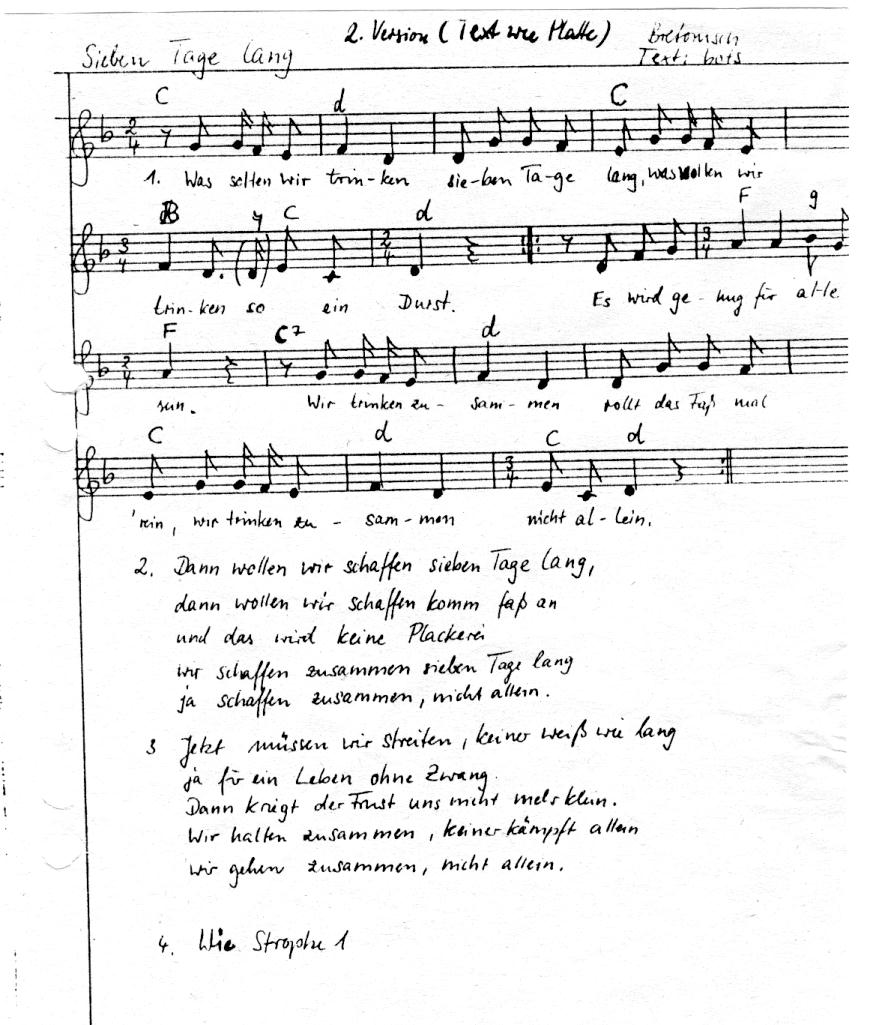 2. Version (Text wie Platte)
Bretonisch
Sieben Tage lang
Text: bots
C d C
2/4
1. Was sollen wir trin-ken sie-ben Ta-ge lang, was wollen wir
B C d F g
3/4 2/4 3/4
trin-ken so ein Durst. Es wird ge-nug für al-le
F C7 d
2/4
sein. Wir trinken zu-sam-men rollt das Faß mal
C d C d
3/4
'rein, wir trinken zu-sam-men nicht al-lein.
2. Dann wollen wir schaffen sieben Tage lang,
dann wollen wir schaffen komm faß an
und das wird keine Plackerei
wir schaffen zusammen sieben Tage lang
ja schaffen zusammen, nicht allein.
3 Jetzt müssen wir streiten, keiner weiß wie lang
ja für ein Leben ohne Zwang.
Dann kriegt der Frust uns nicht mehr klein.
Wir halten zusammen, keiner kämpft allein
wir gehen zusammen, nicht allein.
4. Wie Strophe 1